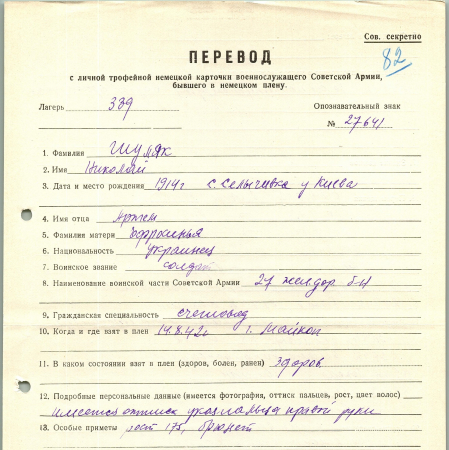 Сов. секретно
82
ПЕРЕВОД
с личной трофейной немецкой карточки военнослужащего Советской Армии,
бывшего в немецком плену.
Лагерь 339 Опознавательный знак
№ 27641
1. Фамилия Шумяк
2. Имя Николай
3. Дата и место рождения 1914г с. Селычивка у Киева
4. Имя отца Артем
5. Фамилия матери
6. Национальность украинец
7. Воинское звание солдат
8. Наименование воинской части Советской Армии 27 жел дор б-н
9. Гражданская специальность счетовод
10. Когда и где взят в плен 14.8.42г г. Майкоп
11. В каком состоянии взят в плен (здоров, болен, ранен) здоров
12. Подробные персональные данные (имеется фотография, оттиск пальцев, рост, цвет волос)
имеется оттиск указ пальца правой руки
13. Особые приметы рост 175, брюнет